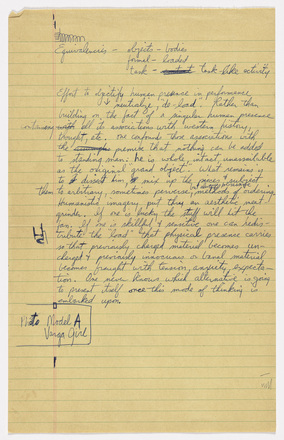 Equivalencies – objects – bodies
formal – loaded
task – task-like activity
Effort to objectify human presence in performance
↓ neutralize, "de-load". Rather than
building on the fact of a singular human presence
with all its associations with western history,
thought, etc. one confounds those associations with
the premise that nothing can be added
to standing man: he is whole, intact, unassailable
as the original grand object. What remains is
to dissect him, & subject
them to arbitrary, sometimes perverse, methods of ordering
humanist imagery, put thru an aesthetic meat
grinder. If one is lucky the shit will hit the
fan; if one is skillful & sensitive one can redis-
tribute the "load" that physical presence carries
so that previously charged material becomes un-
charged & previously innocuous or banal material
becomes fraught with tension, anxiety, expecta-
tion. One never knows which alternative is going
to present itself once this mode of thinking is
embarked upon.
Model A
Varga Girl